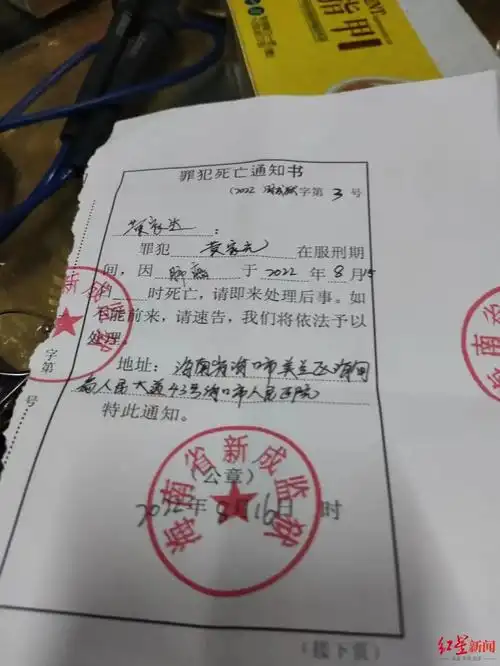 指甲
罪犯死亡通知书
(2022 字第 3 号
黄家达 :
罪犯 黄家光 在服刑期
间，因 肺癌 于 2022 年 8 月 15
时死亡，请即来处理后事。如
不能前来，请速告，我们将依法予以
处理。
地址：海南省海口市美兰区海甸
岛人民大道43号海口市人民医院
特此通知。
海南省新成监狱
(公章)
2022年8月16日 时
(接下页)
字第
号
海南省新成监狱
海南省
红星新闻